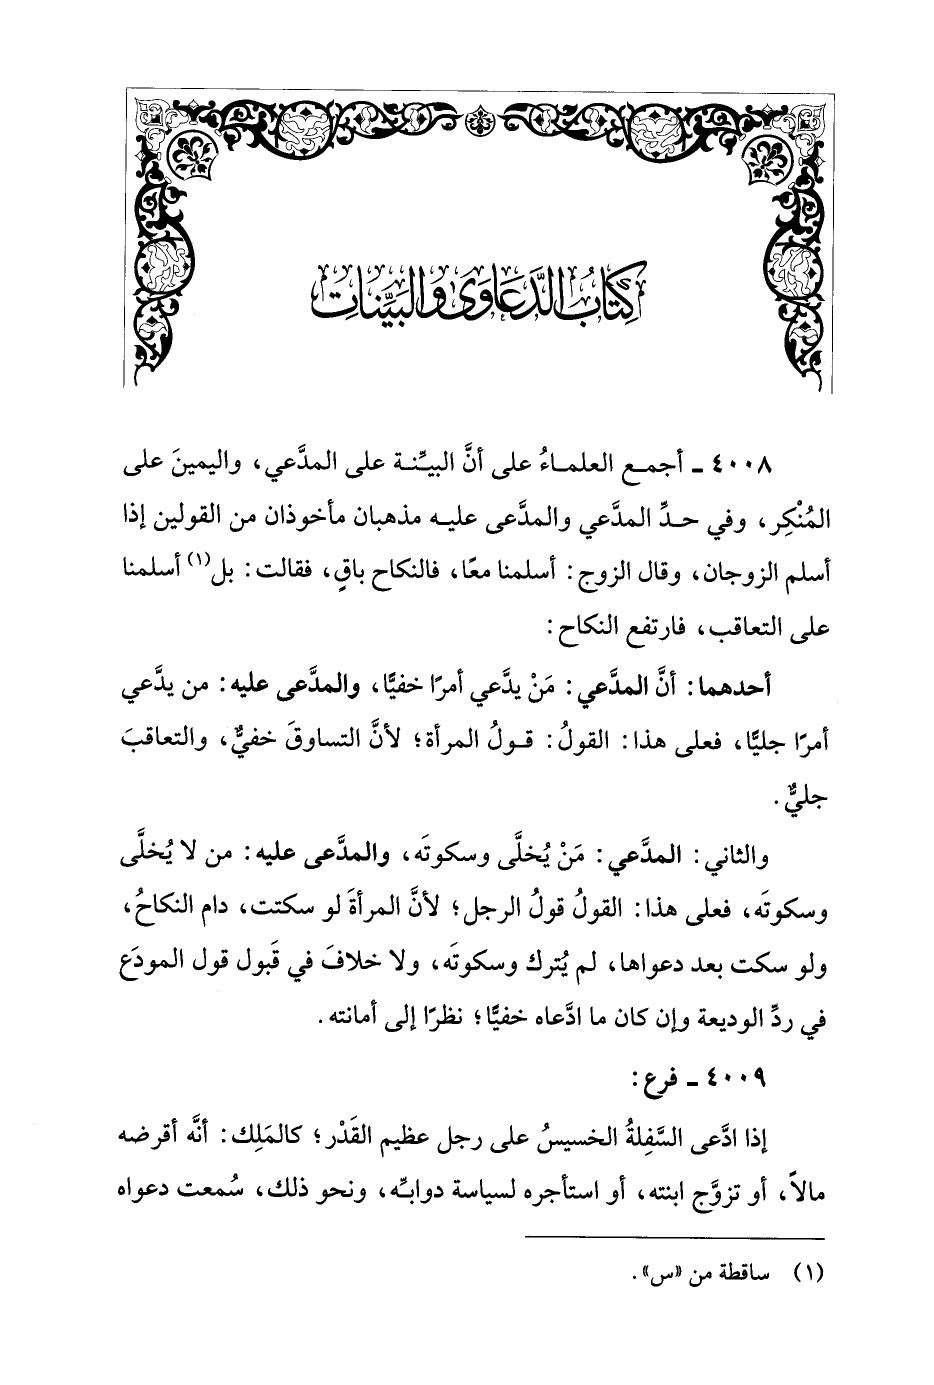 كِتَابُ الدَّعَاوَى وَالبَيِّنَاتِ
٤٠٠٨ ـ أجمع العلماءُ على أنَّ البيِّنة على المدَّعي، واليمينَ على
المُنْكِر، وفي حدِّ المدَّعي والمدَّعى عليه مذهبان مأخوذان من القولين إذا
أسلم الزوجان، وقال الزوج: أسلمنا معًا، فالنكاح باقٍ، فقالت: بل(١) أسلمنا
على التعاقب، فارتفع النكاح:
أحدهما: أنَّ المدَّعي: مَنْ يدَّعي أمرًا خفيًّا، والمدَّعى عليه: من يدَّعي
أمرًا جليًّا، فعلى هذا: القولُ: قولُ المرأة؛ لأنَّ التساوقَ خفيٌّ، والتعاقبَ
جليٌّ.
والثاني: المدَّعي: مَنْ يُخلَّى وسكوتَه، والمدَّعى عليه: من لا يُخلَّى
وسكوتَه، فعلى هذا: القولُ قولُ الرجل؛ لأنَّ المرأةَ لو سكتت، دام النكاحُ،
ولو سكت بعد دعواها، لم يُترك وسكوتَه، ولا خلافَ في قَبول قول المودَع
في ردِّ الوديعة وإن كان ما ادَّعاه خفيًّا؛ نظرًا إلى أمانته.
٤٠٠٩ ـ فرع:
إذا ادَّعى السَّفِلةُ الخسيسُ على رجل عظيم القَدْر؛ كالمَلِك: أنَّه أقرضه
مالاً، أو تزوَّج ابنته، أو استأجره لسياسة دوابِّه، ونحو ذلك، سُمعت دعواه
(١) ساقطة من «س».